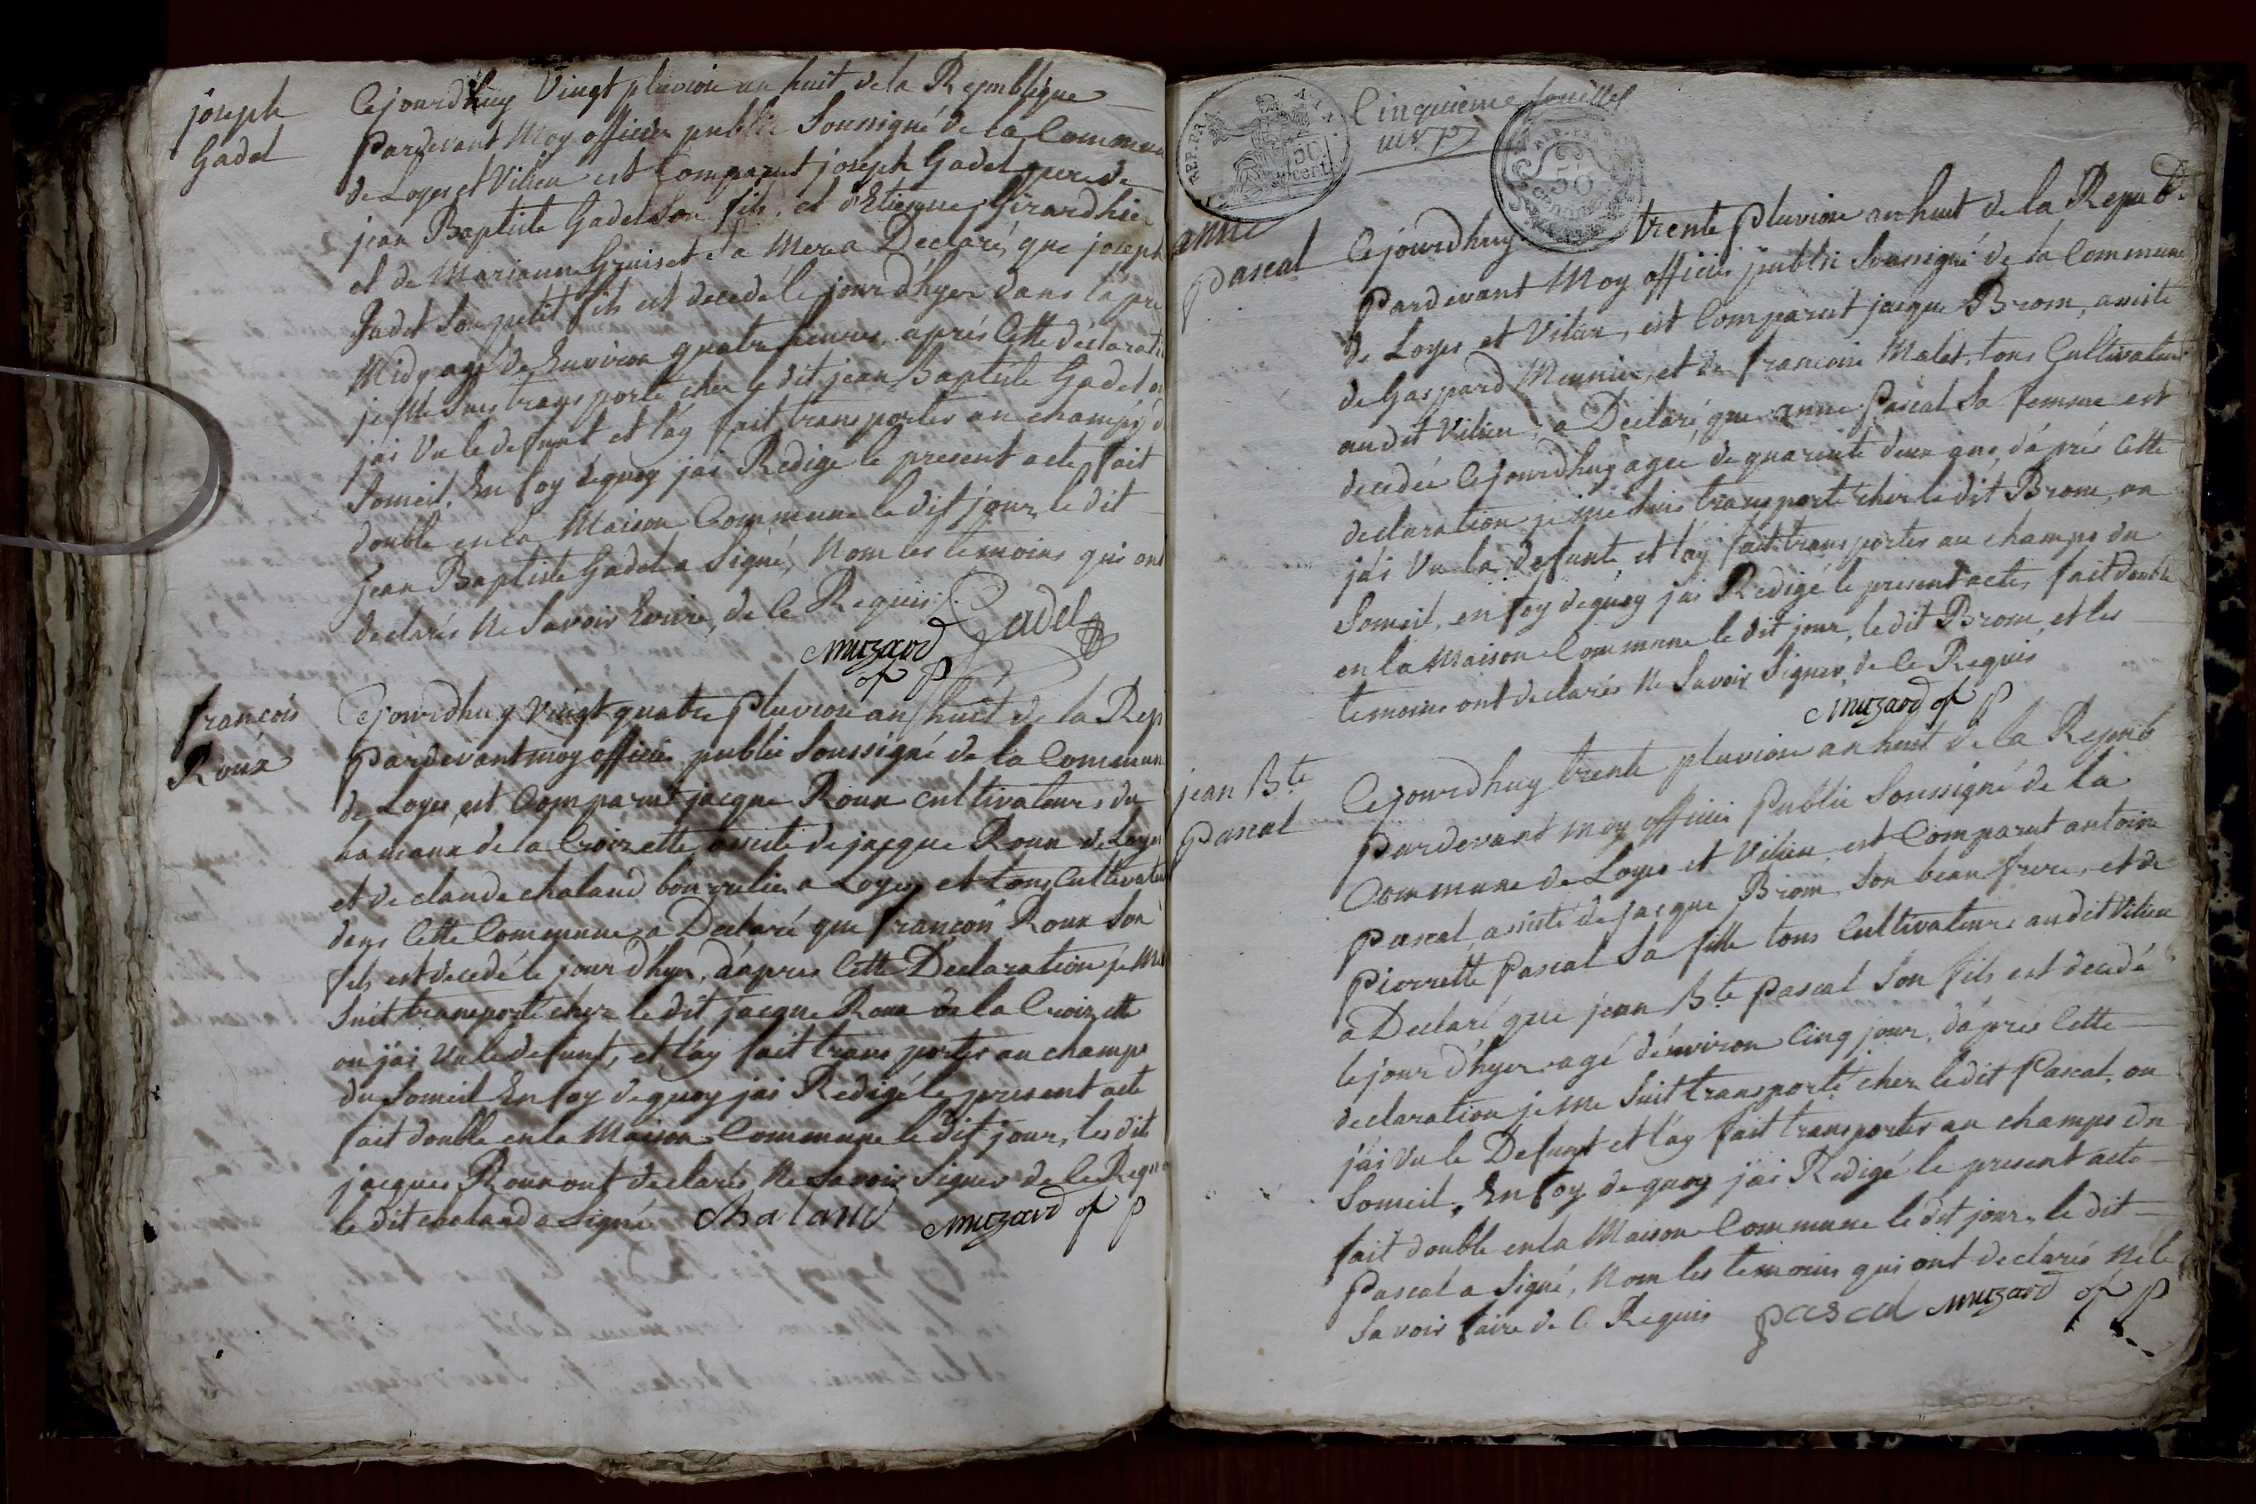 joseph
Gadel
Cejourdhuy Vingt pluviose an huit de la Republique
Pardevant Moy officier public Soussigné de la Commune
de Loyes et Vilieu est Comparut joseph Gadel pere de
jean Baptiste Gadel son fils, et d'Etienne Girard hier
et de Marianne Gruiset sa Mere a Declaré, que joseph
Gadel Son petit fils est decedé le jour d'hyer dans l'apré
Midy agé de Environ quatre heures, aprés Cette déclaration
je Me Suis transporté cher le dit jean Baptiste Gadel ou
jai Vu le defunt et l'ay fait transporter au champs d
Someil, En foy déquoy jai Redigé le present acte fait
double en la Maison Commune le dit jour, le dit
Jean Baptiste Gadel a Signé, Nom les temoins qui ont
declarés Ne Savoir Ecrire, de Ce Requis.
Gadel
Muzard
of p
françois
Roux
Cejourdhuy Vingt quatre Pluviose an huit de la Rep
Pardevant moy officier public Soussigné de la Commun
de Loyes, est Comparut jacque Roux Cultivateurs du
hameaux de la Croizette, assisté de jacque Roux de Loyes
et de claude chaland bourrelier a Loyes et tous Cultivateu
dans Cette Commune a Declaré que françois Roux Son
fils est decedé le jour d'hyer, d'apres Cette Declaration je Me
Suit transporté cher le dit jacque Roux de la Croizette
ou jai Vu le defunt, et l'ay fait transporter au champs
du Someil En foy de quoy jai Redigé le present acte
fait double en la Maison Commune le dit jour, les dits
jacques Roux ont declarés Ne Savoir Signer de Ce Requ
le dit chaland a Signé Chaland Muzard of p
REP. FRA
50
cent.
Cinquième feuillet
50
anne
pascal
Cejourdhuy trente Pluviose an huit de la Repub.
Pardevant Moy officier public Soussigné de la Commune
de Loyes et Vilieu, est Comparut jacque Brom, assisté
de Gaspard Meunier, et de francoise Malet, tous Cultivateurs
audit Vilieu, a Declaré, que anne Pascal Sa femme est
decedée Cejourdhuy agée de quarente deux ans, d'aprés Cette
declaration je me Suis transporté cher le dit Brom, ou
j'ai Vu la defunte et l'ay fait transporter au champs du
Someil, en foy de quoy jai Redigé le present acte, fait double
en la Maison Commune le dit jour, le dit Brom, et les
temoins ont declarés Ne Savoir Signer, de Ce Requis
Muzard of p
jean Bte
Pascal
Cejourdhuy trente pluviose an huit de la Repub
Pardevant moy officier Public Soussigné de la
Commune de Loyes et Vilieu, est Comparut antoine
Pascal, assisté de jacque Brom, Son beau frere, et de
Pierrette Pascal Sa fille tous Cultivateurs au dit Vilieu
a Declaré que jean Bte Pascal Son fils est decedé
le jour d'hyer agé d'environ Cinq jour, d'aprés Cette
declaration je me Suit transporté cher ledit Pascal, ou
j'ai Vu le Defunt et l'ay fait transporter au champs du
Someil, En foy de quoy j'ai Redigé le present acte
fait double en la Maison Commune le dit jour, le dit
Pascal a Signé, Nom les temoins qui ont declarés Ne le
Savoir faire de Ce Requis pascal Muzard of p